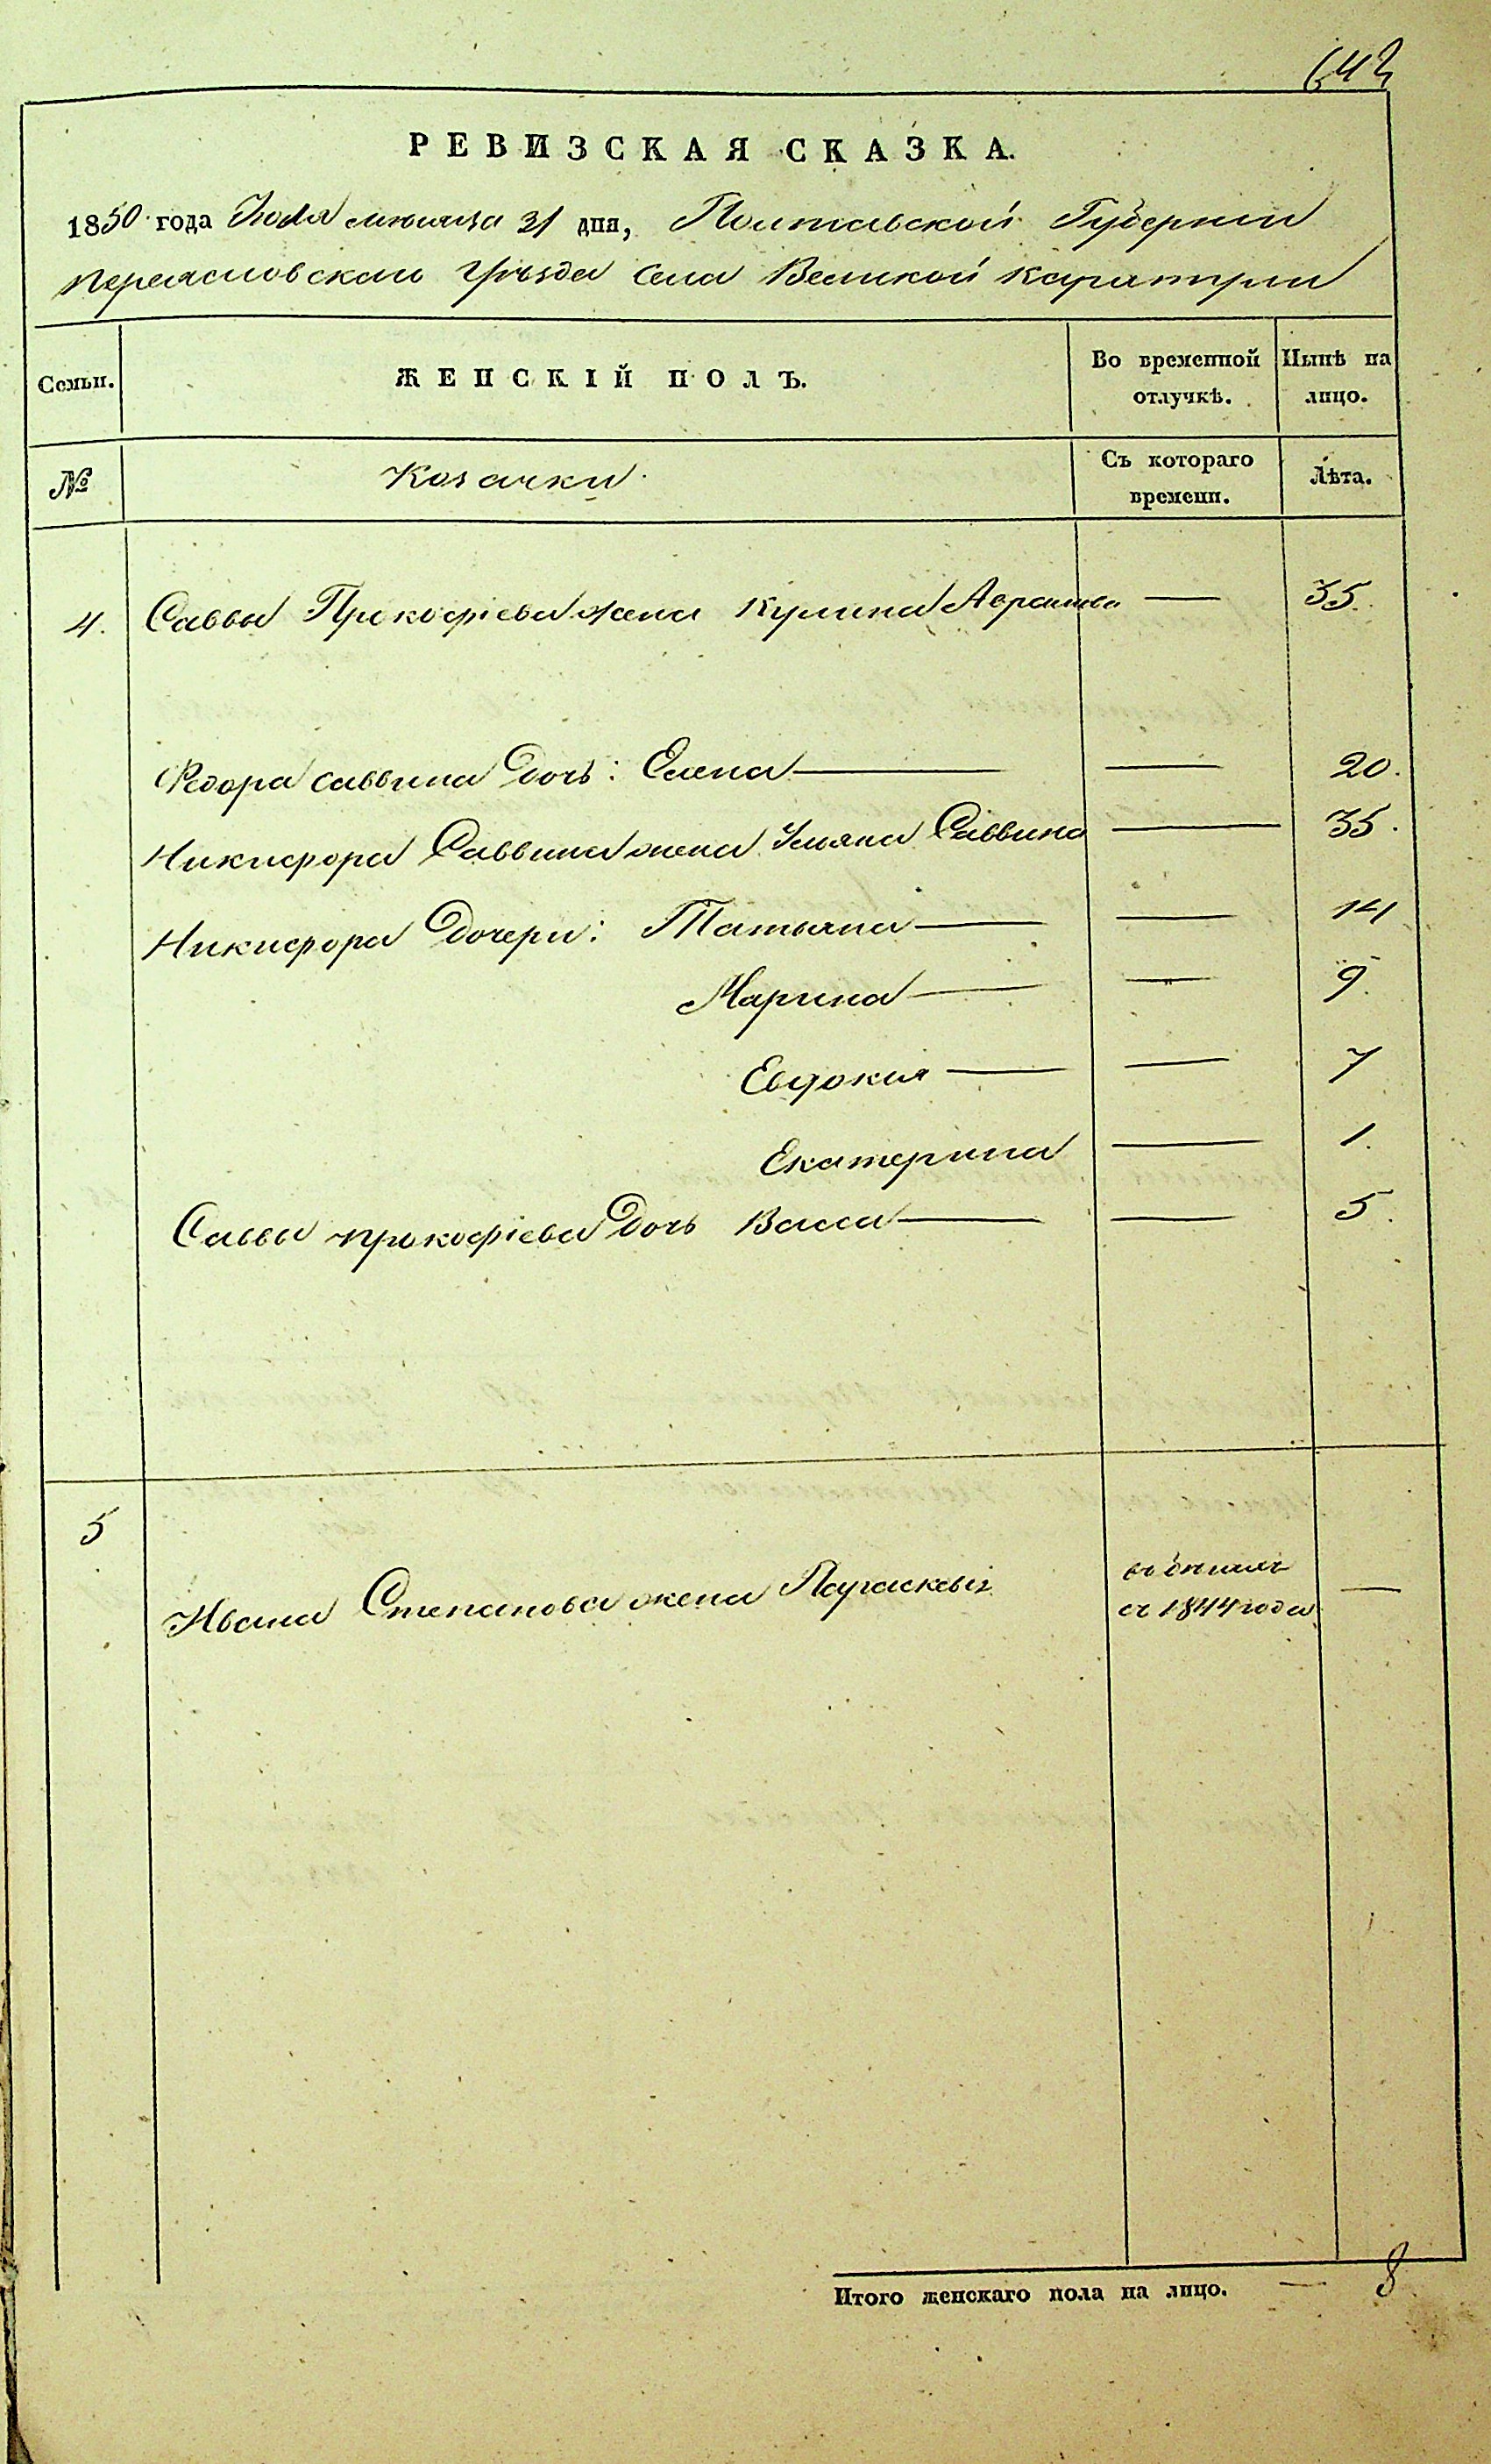 642
РЕВИЗСКАЯ СКАЗКА.
1850 года Июля мѣсяца 31 дня, Полтавской Губерніи
Переясловскаго Уѣзда Села Великой Каратули
Семьи.
ЖЕНСКІЙ ПОЛЪ.
Во временной отлучкѣ.
Нынѣ на лицо.
№
Козачки.
Съ котораго времени.
Лѣта.
4. Саввы Прокофіева жена Кулина — 35.
Федора Саввина Дочь: Елена — — 20.
Никифора Саввина жена Ульяна Саввина — 35.
Никифора Дочери: Татьяна — — 14
Марина — — 9.
Евдокия — — 7
Екатерина — 1.
Саввы Прокофіева Дочь Васса — — 5.
5
Ивана Степанова жена Параскевія
въ бѣгахъ —
съ 1844 года
Итого женскаго пола на лицо. — 8